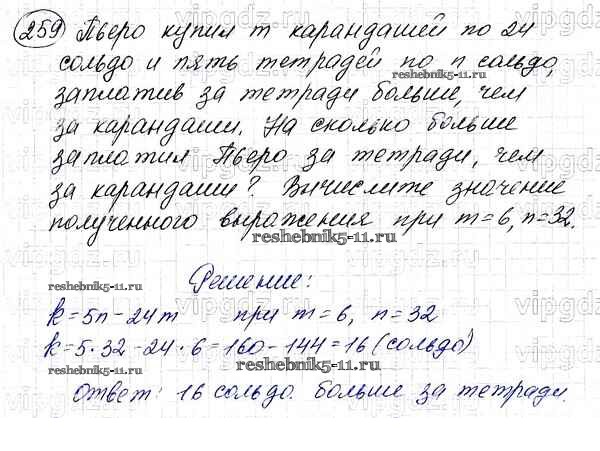 259 Пьеро купил m карандашей по 24
сольдо и пять тетрадей по n сольдо,
заплатив за тетради больше, чем
за карандаши. На сколько больше
заплатил Пьеро за тетради, чем
за карандаши? Вычислите значение
полученного выражения при m=6, n=32.
Решение:
k=5n-24m при m=6, n=32
k=5·32-24·6=160-144=16 (сольдо)
Ответ: 16 сольдо больше за тетради.
reshebnik5-11.ru
reshebnik5-11.ru
reshebnik5-11.ru
reshebnik5-11.ru
reshebnik5-11.ru
vipgdz